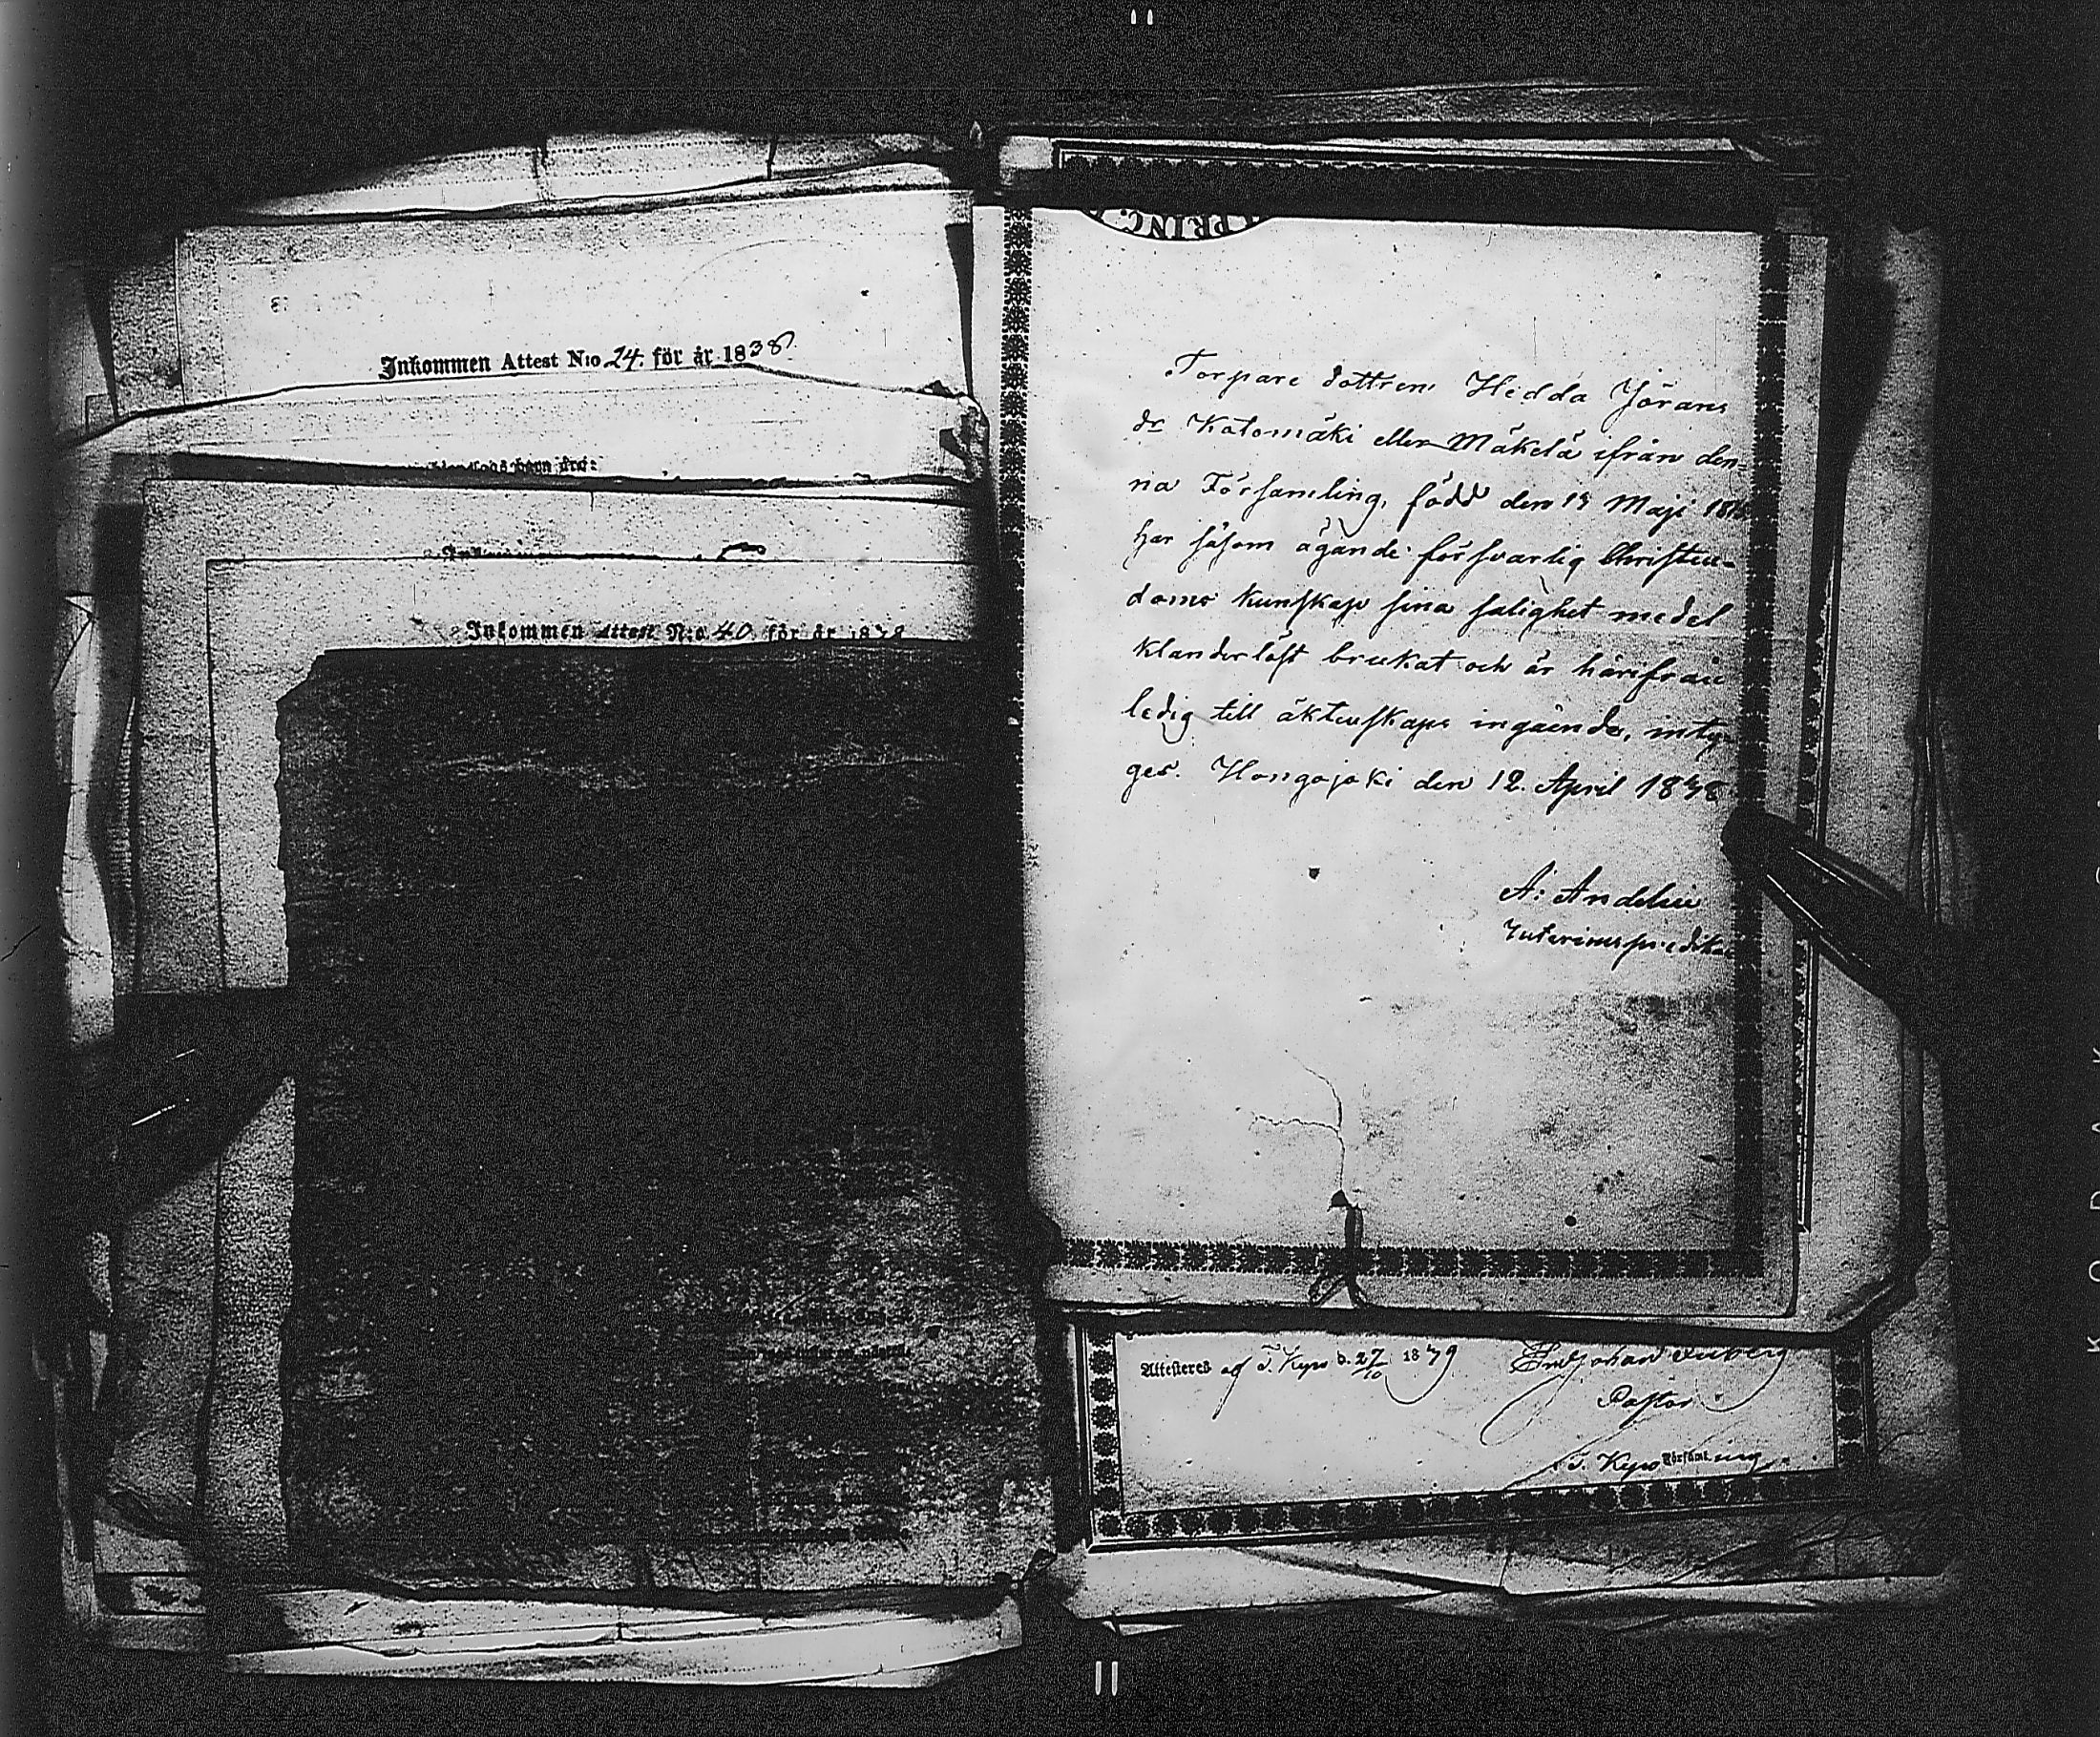 Inkommen Attest N:o 24. för år 1838
Inkommen Attest N:o 40 för år 1878
PRINC.
Torpare dottren Hedda Jörans
dr Katomäki eller Mäkelä ifrån den=
na Församling, född den 19 Maji
har såsom ägande försvarlig Christen-
doms kunskap sina salighet medel
klanderlöst brukat och är härifrån
ledig till äktenskaps ingående, inty-
ges. Hongojoki den 12. April 1878
A: Andelin
Interimspredik.
Attesteras af St. Kyro d. 27/10 1879 Johan
Pastor
St. Kyro Församling
KODAK